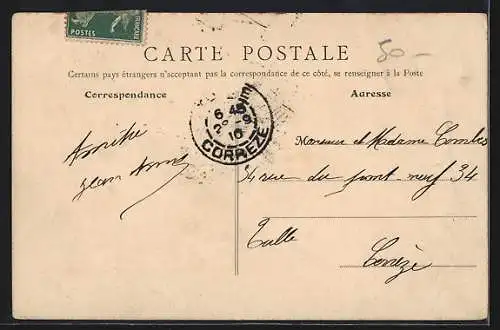 POSTES
CARTE POSTALE
50 —
Certains pays étrangers n'acceptant pas la correspondance de ce côté, se renseigner à la Poste
Correspondance
Adresse
6 45
28 - 9
10
CORRÈZE
Amitié
Jean
Monsieur et Madame Combes
34 rue du pont-neuf 34
Tulle
Corrèze